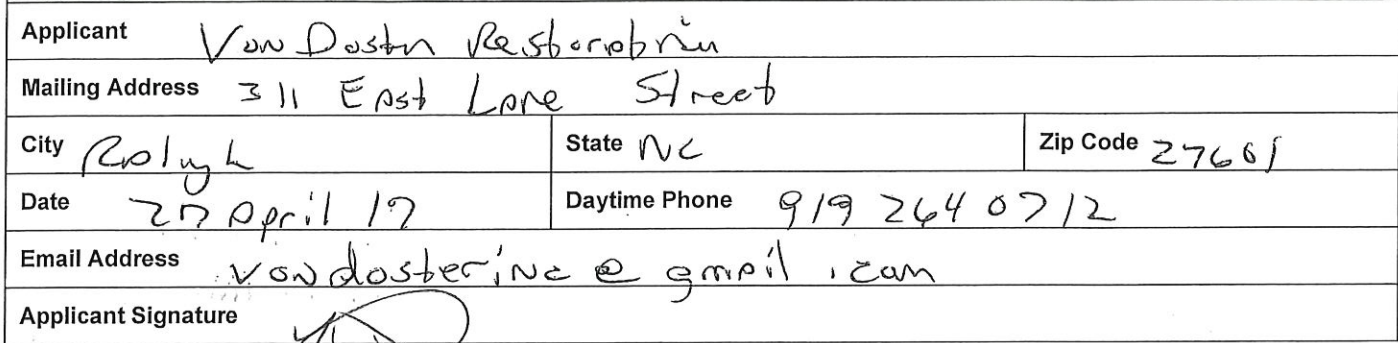 Applicant Von Doster Restoration
Mailing Address 311 East Lane Street
City Raleigh State NC Zip Code 27601
Date 27 April 17 Daytime Phone 919 264 0712
Email Address vondosterinc@gmail.com
Applicant Signature